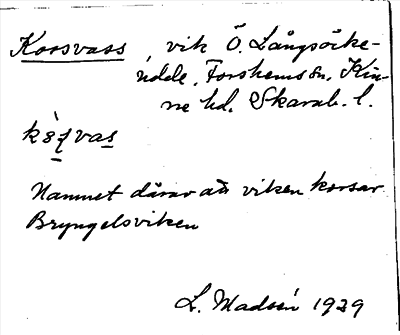 Korsvass, vik Ö. Långsöke-
udde, Forshems sn, Kin-
ne hd. Skarab. l.
Namnet därav att viken korsar
Bryngelsviken
L. Madsén 1929